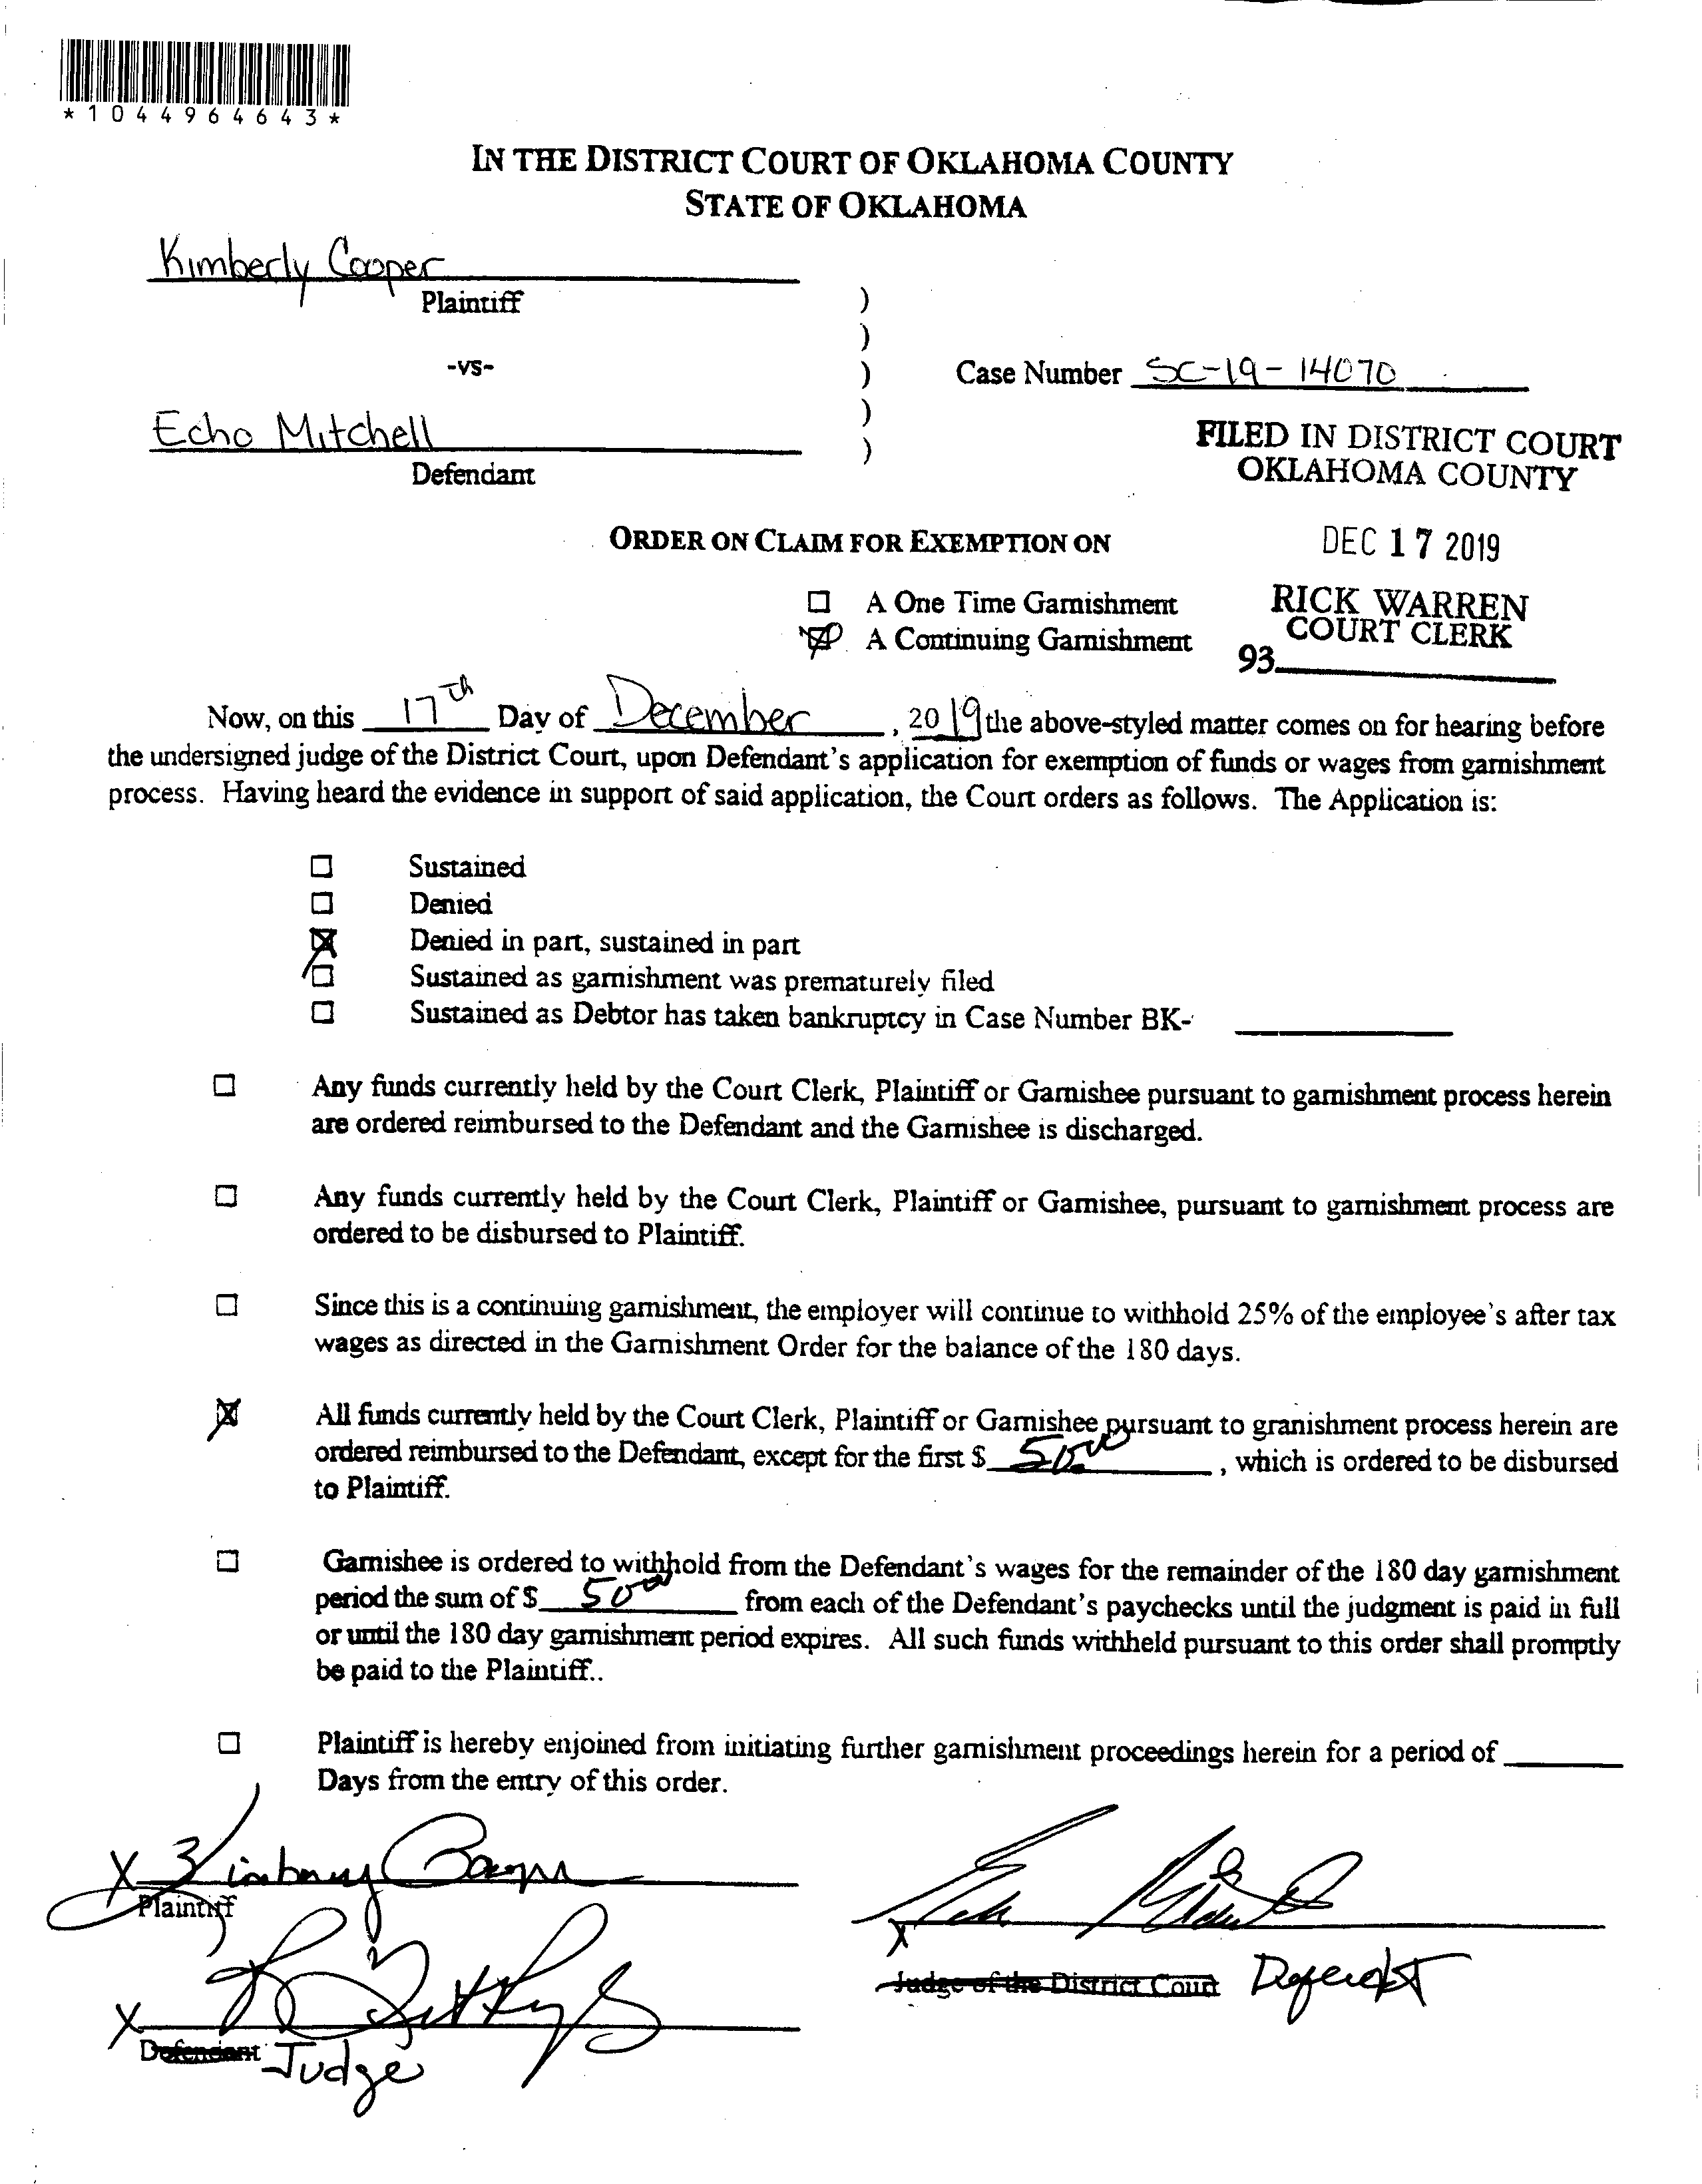 *1044964643*
IN THE DISTRICT COURT OF OKLAHOMA COUNTY
STATE OF OKLAHOMA
Kimberly Cooper
Plaintiff
-vs-
Echo Mitchell
Defendant
)
)
)
)
)
Case Number SC-19-14070
FILED IN DISTRICT COURT
OKLAHOMA COUNTY
DEC 17 2019
RICK WARREN
COURT CLERK
93
ORDER ON CLAIM FOR EXEMPTION ON
☐ A One Time Garnishment
☒ A Continuing Garnishment
Now, on this 17th Day of December, 2019 the above-styled matter comes on for hearing before
the undersigned judge of the District Court, upon Defendant's application for exemption of funds or wages from garnishment
process. Having heard the evidence in support of said application, the Court orders as follows. The Application is:
☐ Sustained
☐ Denied
☒ Denied in part, sustained in part
☐ Sustained as garnishment was prematurely filed
☐ Sustained as Debtor has taken bankruptcy in Case Number BK-
☐ Any funds currently held by the Court Clerk, Plaintiff or Garnishee pursuant to garnishment process herein
are ordered reimbursed to the Defendant and the Garnishee is discharged.
☐ Any funds currently held by the Court Clerk, Plaintiff or Garnishee, pursuant to garnishment process are
ordered to be disbursed to Plaintiff.
☐ Since this is a continuing garnishment, the employer will continue to withhold 25% of the employee's after tax
wages as directed in the Garnishment Order for the balance of the 180 days.
☒ All funds currently held by the Court Clerk, Plaintiff or Garnishee pursuant to granishment process herein are
ordered reimbursed to the Defendant, except for the first $ , which is ordered to be disbursed
to Plaintiff.
☐ Garnishee is ordered to withhold from the Defendant's wages for the remainder of the 180 day garnishment
period the sum of $ from each of the Defendant's paychecks until the judgment is paid in full
or until the 180 day garnishment period expires. All such funds withheld pursuant to this order shall promptly
be paid to the Plaintiff..
☐ Plaintiff is hereby enjoined from initiating further garnishment proceedings herein for a period of
Days from the entry of this order.
X
Plaintiff
X
Judge of the District Court Defendant
X
Defendant Judge